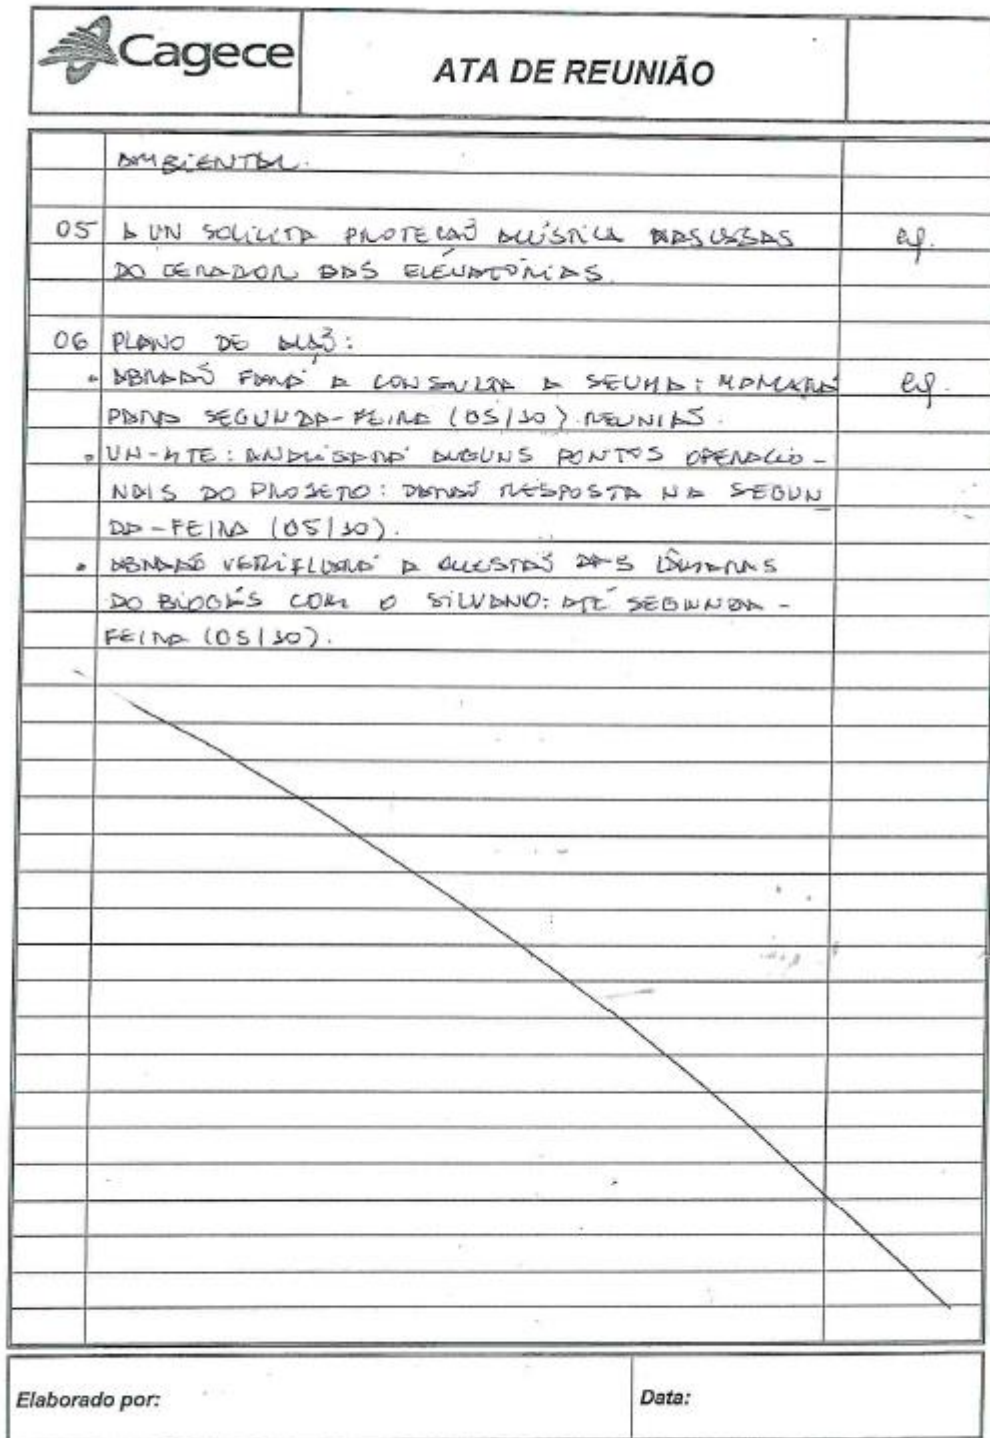 Cagece
ATA DE REUNIÃO
AMBIENTAL.
05 A UN SOLICITA PROTEÇÃO ACÚSTICA NAS CASAS
DO GERADOR DAS ELEVATÓRIAS.
06 PLANO DE AÇÃO:
• ABRAÃO FARÁ A CONSULTA A SEUMA: MARCARÁ
PARA SEGUNDA-FEIRA (05/10) REUNIÃO.
• UN-MTE: ANALISARÁ ALGUNS PONTOS OPERACIO-
NAIS DO PROJETO: DARÁ RESPOSTA NA SEGUN
DA-FEIRA (05/10).
• ABRAÃO VERIFICARÁ A QUESTÃO DAS
DO COM O SILVANO: ATÉ SEGUNDA-
FEIRA (05/10).
Elaborado por:
Data: